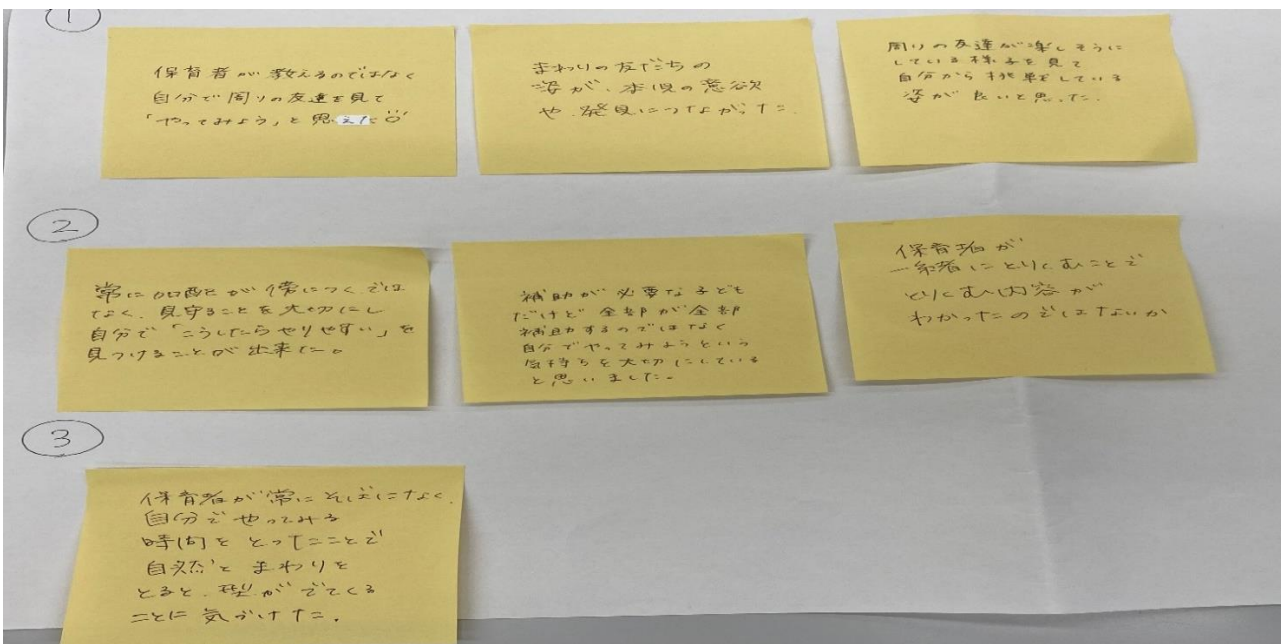 ①
保育者が教えるのではなく
自分で周りの友達を見て
「やってみよう」と思えた
まわりの友だちの
姿が、本児の意欲
や、発見につながった。
周りの友達が楽しそうに
している様子を見て
自分から挑戦している
姿が良いと思った。
②
常に加配が傍につくでは
なく、見守ることを大切にし
自分で「こうしたらやりやすい」を
見つけることが出来た。
補助が必要な子ども
だけど全部が全部
補助するのではなく
自分でやってみようという
気持ちを大切にしている
と思いました。
保育者が
一緒にとりくむことで
とりくむ内容が
わかったのではないか
③
保育者が常にそばになく、
自分でやってみる
時間をとったことで
自然とまわりを
とると、型がでてくる
ことに気づけた。